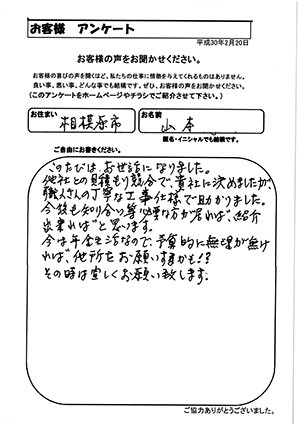 お客様 アンケート
平成30年2月20日
お客様の声をお聞かせください。
お客様の喜びの声を聞くほど、私たちの仕事に情熱を与えてくれるものはありません。
良い事、悪い事、どんな事でも結構です。ぜひ、お客様の声をお聞かせください。
(このアンケートをホームページやチラシでご紹介させて下さい。)
お住まい
相模原市
お名前
山本
匿名・イニシャルでも結構です。
ご自由にお書きください。
このたびは、お世話になりました。
他社との見積もり競分で、貴社に決めましたが、
職人さんの丁寧な工事仕様で助かりました。
今後も知り合い等必要な方が居れば、紹介
出来ればと思います。
今は年金生活なので、予算的に無理が無け
れば、他所をお願いするかも!?
その時は宜しくお願い致します。
ご協力ありがとうございました。